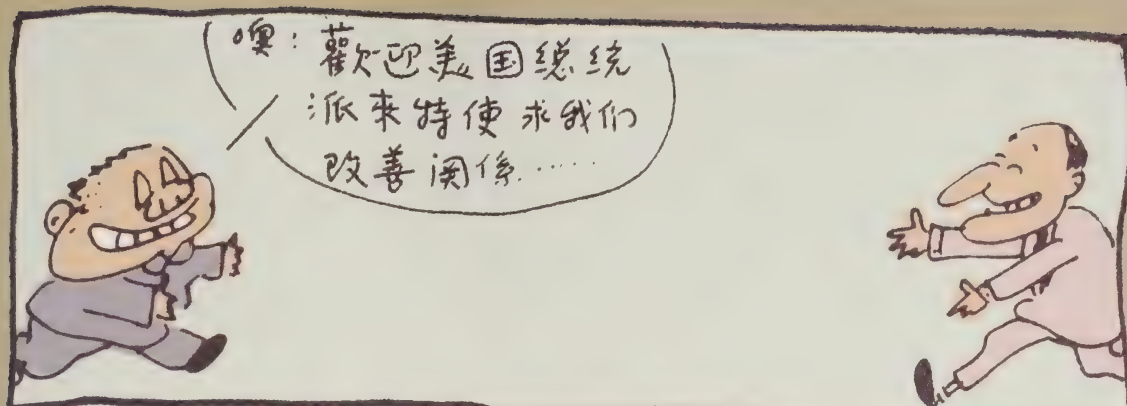 噢：歡迎美国總統
派來特使求我们
改善関係……